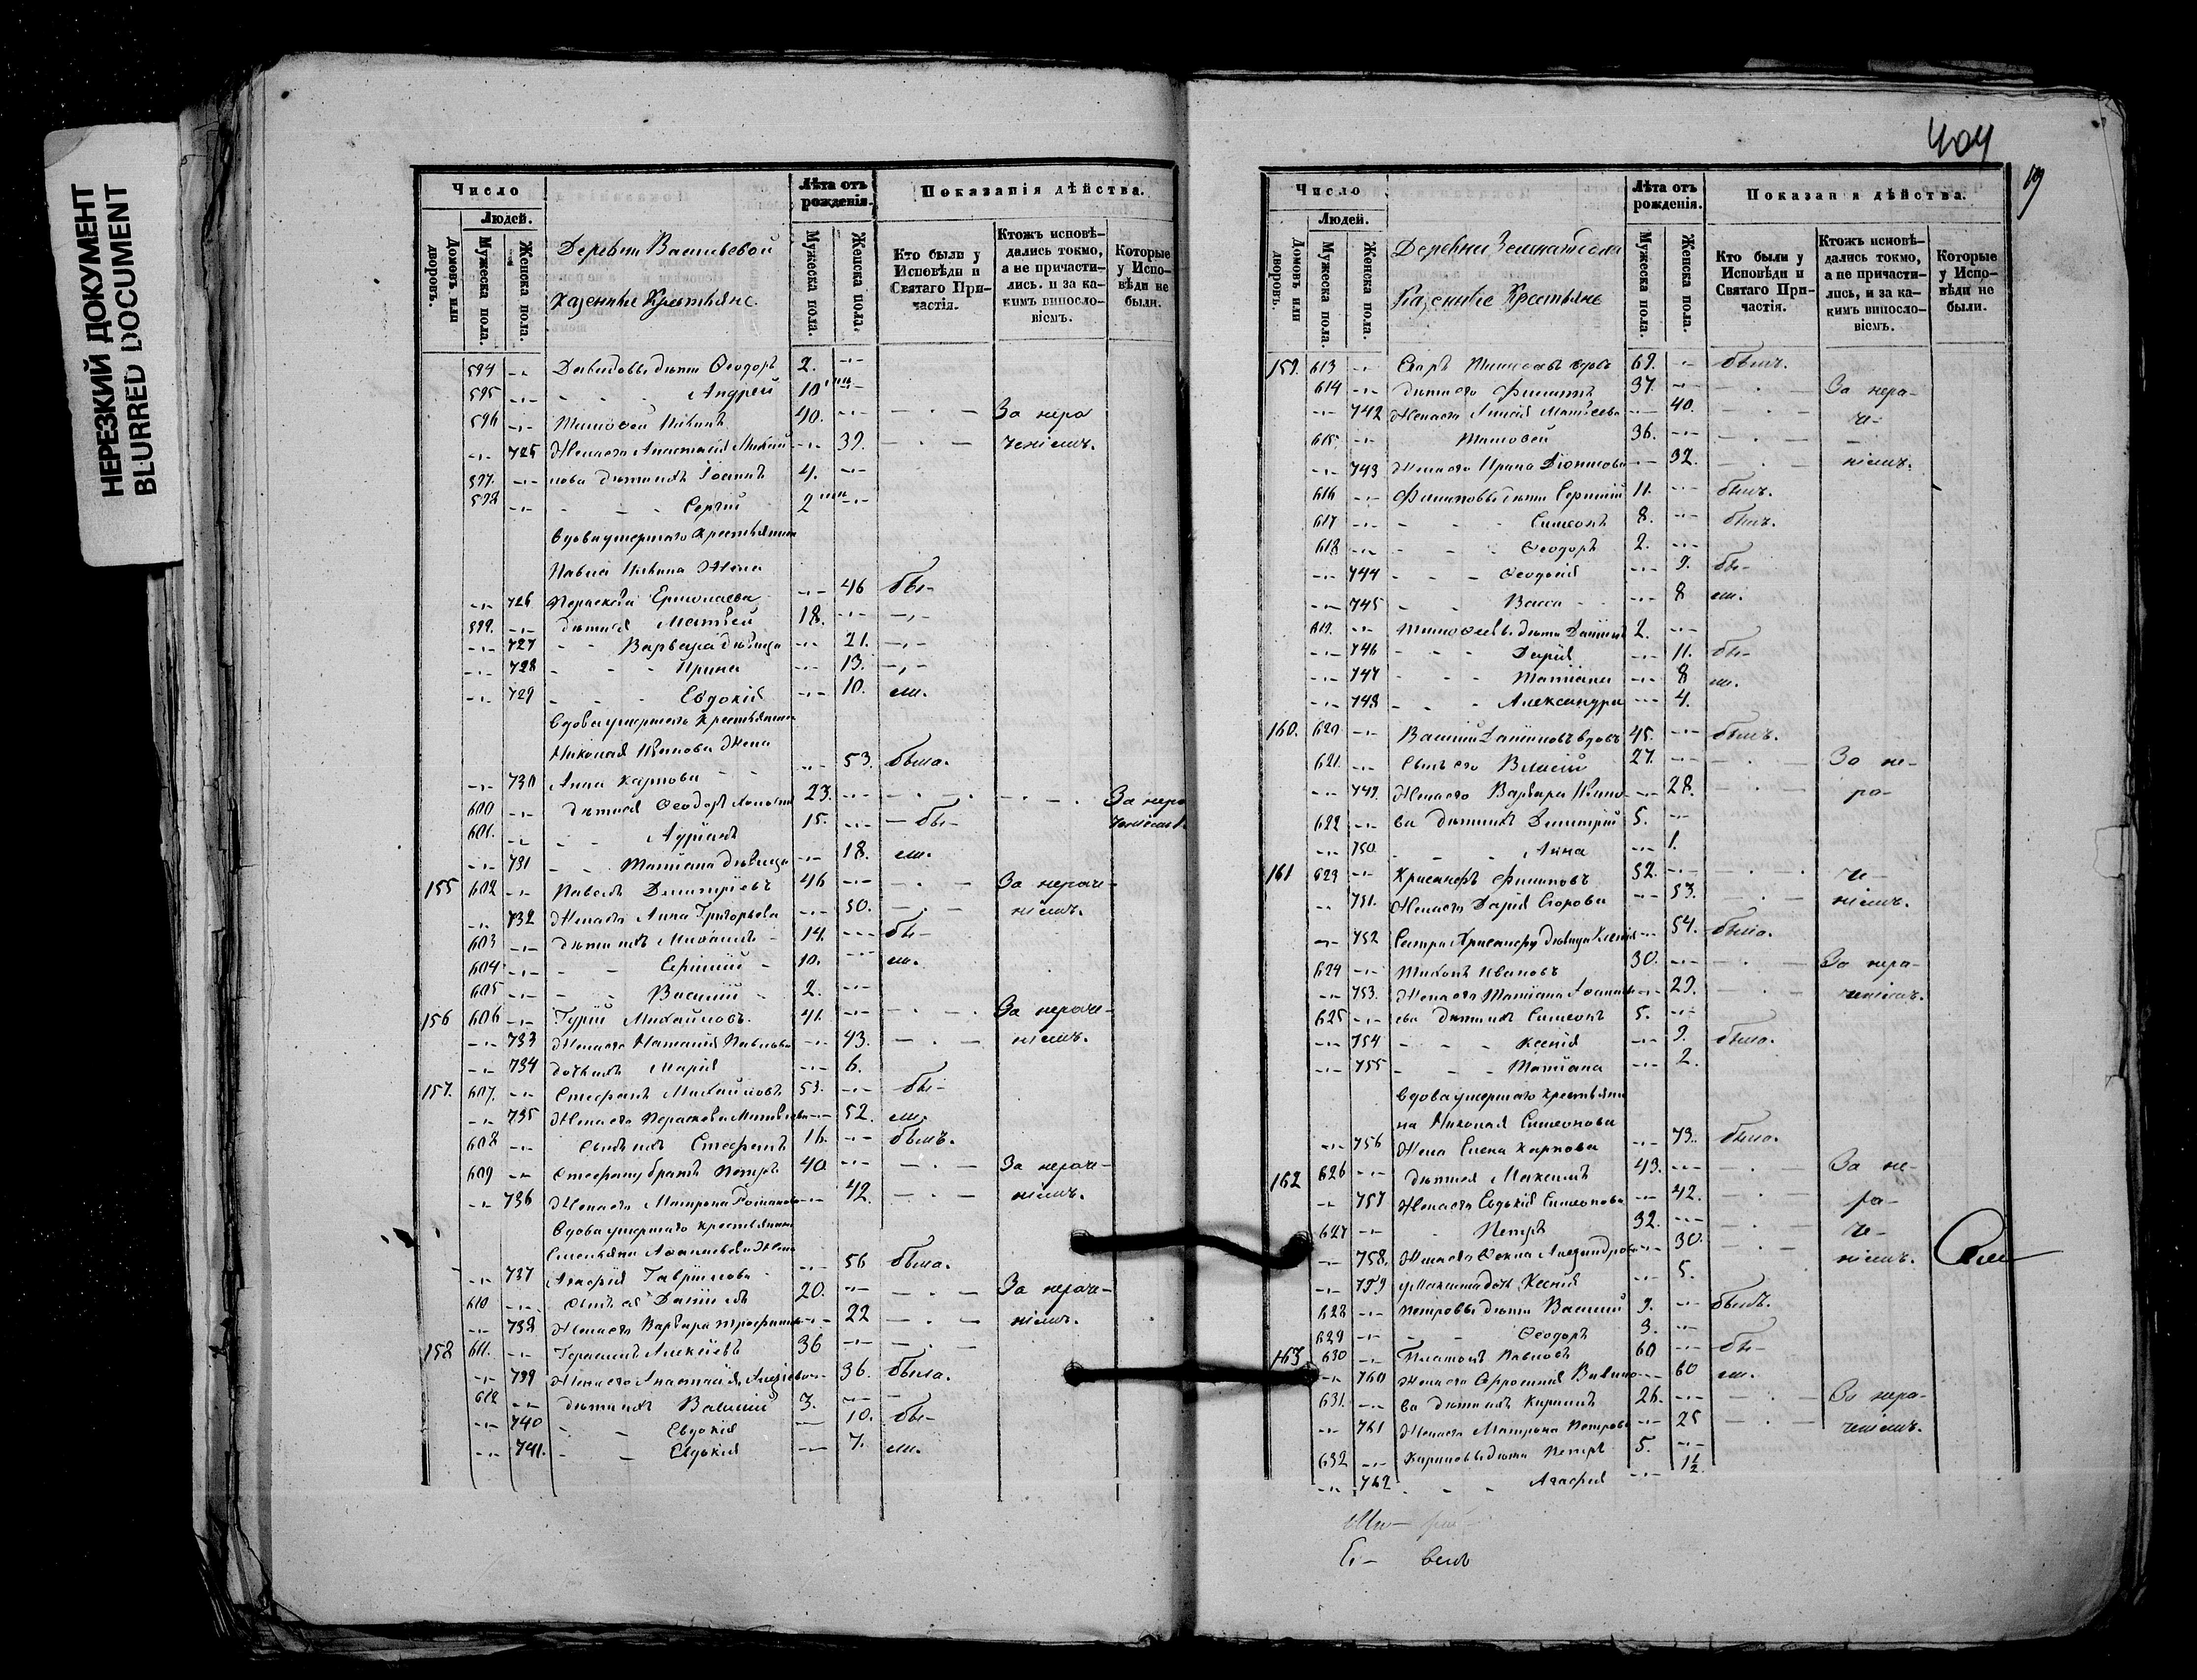 НЕРЕЗКИЙ ДОКУМЕНТ
BLURRED DOCUMENT
Число
Людей.
Домовъ или дворовъ.
Мужеска пола.
Женска пола.
Деревни Васильевой
Казенные Крестьяне.
Лѣта отъ рожденія.
Мужеска пола.
Женска пола.
Показанія дѣйства.
Кто были у Исповѣди и Святаго Причастія.
Ктожъ исповѣдались токмо, а не причастились. и за какимъ винословіемъ.
Которые у Исповѣди не были.
594 Давидовы дѣти Ѳеодоръ 2.
595 Андрей 10
596 Тимоѳей 40. За нера
725 Жена его Анастасія 39. ченіемъ.
597. нова дѣти ихъ Іоаннъ 4.
598 Сергій 2
Вдова умершаго Крестьянина
Жена
726 Параскева Ермолаева 46 бы-
599. дѣти ея Матвей 18.
727 Варвара дѣвица 21.
728 Ирина 13.
729 Евдокія 10. ли.
Вдова умершаго Крестьянина
Николая Иванова Жена
730 Анна Карпова 53. была.
600 дѣти ея Ѳеодоръ холостъ 23. За нера
601. Адріанъ 15. бы- ченіемъ.
731 Татіана дѣвица 18. ли.
155 602 Павелъ Димитріевъ 46 За нераче-
732 Жена его Анна Григорьева 50. ніемъ.
603 дѣти ихъ Михаилъ 14. бы-
604 Сергій 10. ли.
605 Василій 2.
156 606 Гурій Михайловъ 41. За нераче-
733 Жена его Наталія Павлова 43. ніемъ.
734 дочь ихъ Марія 6.
157. 607. Стефанъ Михайловъ 53. бы-
735 Жена его Параскева Матвѣева 52. ли.
608 Сынъ ихъ Стефанъ 16. былъ.
609 Стефану братъ Петръ 40 За нераче-
736 Жена его Матрона Романова 42. ніемъ.
Вдова умершаго Крестьянина
Емельяна Аѳанасьева Жена
737 Агафія Гавриилова 56 была.
610 Сынъ ея Даніилъ 20. За нераче-
738 Жена его Варвара Трофимова 22 ніемъ.
158 611. Герасимъ Алексѣевъ 36
739 Жена его Анастасія 36. была.
612 дѣти ихъ Василій 3.
740 Евдокія 10. бы-
741. Евдокія 7. ли.
404
19
Число
Людей.
Домовъ или дворовъ.
Мужеска пола.
Женска пола.
Деревни
Казенные Крестьяне
Лѣта отъ рожденія.
Мужеска пола.
Женска пола.
Показан я дѣйства.
Кто были у Исповѣди и Святаго Причастія.
Ктожъ исповѣдались токмо, а не причастились, и за какимъ винословіемъ.
Которые у Исповѣди не были.
159. 613 вдовъ 69. былъ.
614 дѣти его Филиппъ 37. За нера-
742 Жена его Матвеева 40. че-
615. Тимоѳей 36.
743 Жена его Ирина Діонисова 32. ніемъ.
616 Филиповы дѣти Сергій 11. былъ.
617 Симеонъ 8. былъ.
618 Ѳеодоръ 2.
744 Ѳеодосія 9. бы-
745 Васса 8 ли.
619. Тимоѳеевы дѣти Даніилъ 2.
746 Дарія 11. бы-
747 Татіана 8 ли.
748 Александра 4.
160. 620 Василій Даніиловъ вдовъ 45. былъ.
621. Сынъ его Василій 27. За не-
749. Жена его Варвара Ивано- 28. ра-
622 ва дѣти ихъ Димитрій 5.
750 Анна 1.
161 623 Крисанфъ Филиповъ 52. че-
751. Жена его Дарія Егорова 53. ніемъ.
752 Сестра Крисанфу дѣвица 54. была.
624 Тихонъ Ивановъ 30. За нера-
753. Жена его Татіана 29. ченіемъ.
625 ева дѣти ихъ Симеонъ 5.
754 Ксенія 9. была.
755 Татіана 2.
Вдова умершаго крестьяни
на Николая Симеонова
756 Жена Елена Карпова 73. была.
162 626 дѣти ея Максимъ 43. За не-
757 Жена его Евдокія Симеонова 42. ра-
627 Петръ 32. че-
758. Жена его Ѳекла Александрова 30. ніемъ.
759 у Максима дочь Ксенія 5.
628 Петровы дѣти Василій 9. былъ.
629 Ѳеодоръ 3.
163 630 Платонъ Павловъ 60 бы-
760 Жена его 60 ли.
631. ва дѣти ихъ Кириллъ 26. За нера-
761 Жена его Матрона Петрова 25 ченіемъ.
632 Кириловы дѣти Петръ 5.
762 Агафія 1½